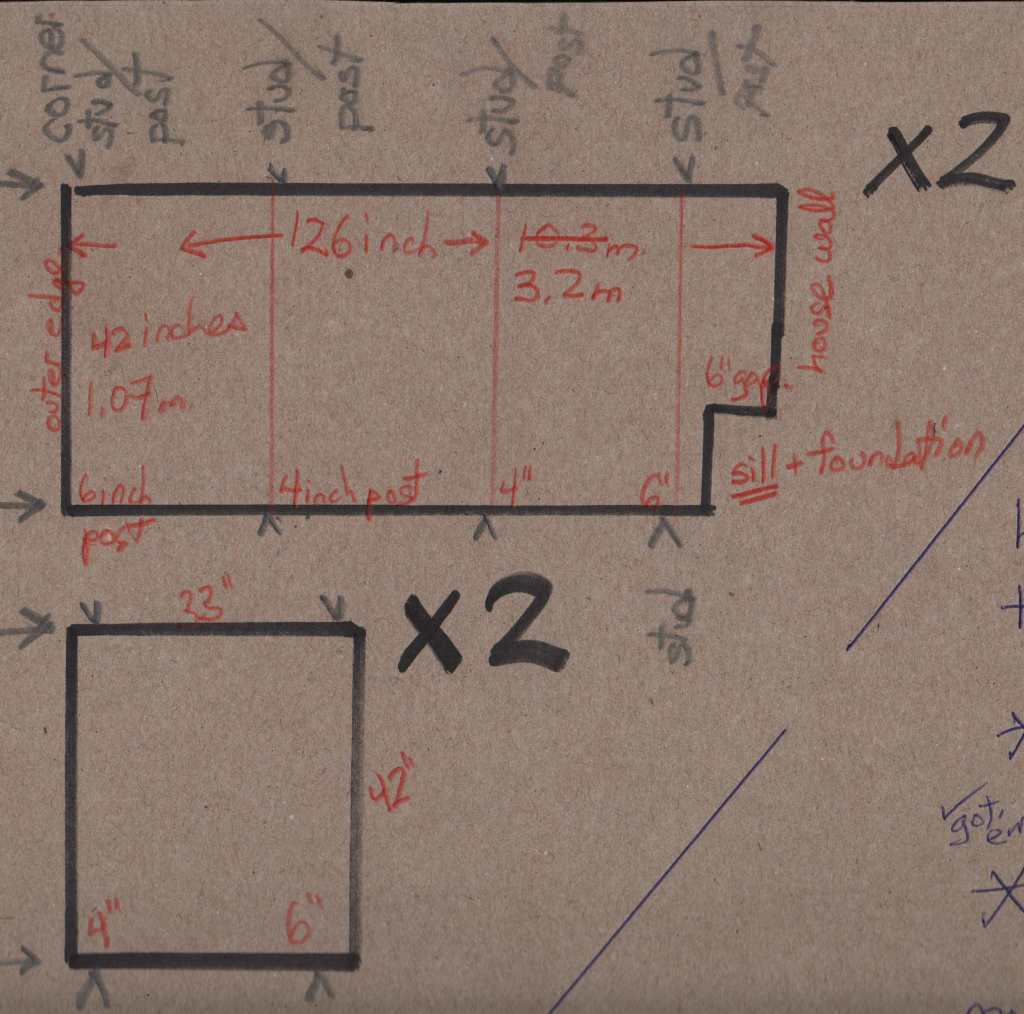 corner
stud/
post
stud/
post
stud/
post
stud/
post
x2
126 inch
10.3 m.
3.2 m
42 inches
1.07 m
outer edge
house wall
6" gap.
sill + foundation
6 inch
post
4 inch post
4"
6"
stud
x2
42"
4"
6"
got